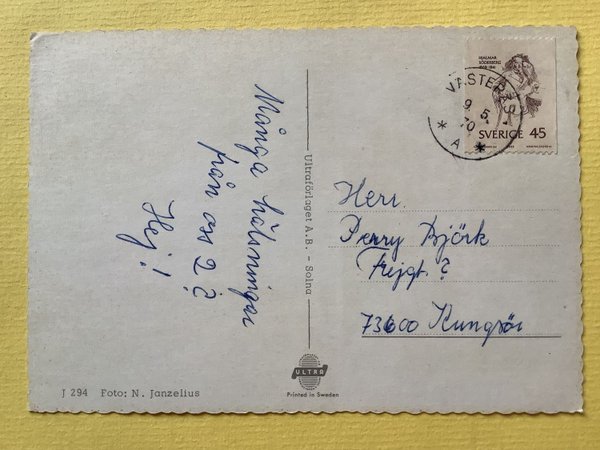 Många hälsningar
från oss 2?
Hej!
Ultraförlaget A.B. - Solna
HJALMAR
SÖDERBERG
SVERIGE 45
VÄSTERÅS 1
9 5
70
* A *
Herr.
Perry Björk
Frejgt. ?
73600 Kungsör
J 294 Foto: N. Janzelius
ULTRA
Printed in Sweden